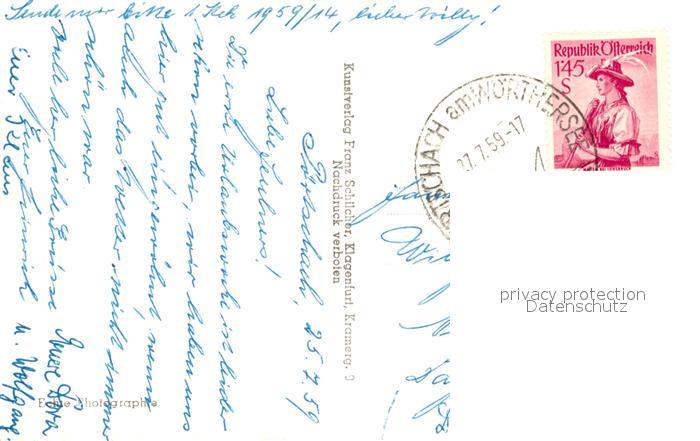 Sende mir bitte 1 Stck 1959/14, lieber Willy!
Pörtschach, 25.7.59
Liebe Julius!
Die erste Urlaubswoche ist leider
schon vorüber, wir haben uns
hier gut eingewöhnt, wenn
auch das Wetter nicht immer
schön war.
Viele herzliche Grüsse
Euer Heinrich
Euer Klaus
Eure Dora
u. Wolfgang.
Kunstverlag Franz Schilcher, Klagenfurt, Kramerg. 9
Nachdruck verboten
Echte Photographie
Republik Österreich
1'45
S
PÖRTSCHACH am WÖRTHERSEE
27.7.59.-17
privacy protection
Datenschutz